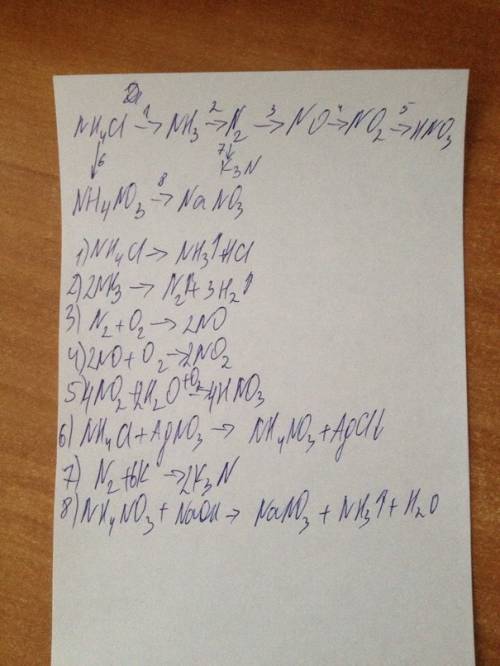 NH₄Cl →¹ NH₃ →² N₂ →³ NO →⁴ NO₂ →⁵ HNO₃
↓6 7↓
K₃N
NH₄NO₃ →⁸ NaNO₃
1) NH₄Cl → NH₃↑ + HCl
2) 2NH₃ → N₂↑ + 3H₂↑
3) N₂ + O₂ → 2NO
4) 2NO + O₂ → 2NO₂
5) 4NO₂ + 2H₂O +O₂ → 4HNO₃
6) NH₄Cl + AgNO₃ → NH₄NO₃ + AgCl↓
7) N₂ + 6K → 2K₃N
8) NH₄NO₃ + NaOH → NaNO₃ + NH₃↑ + H₂O